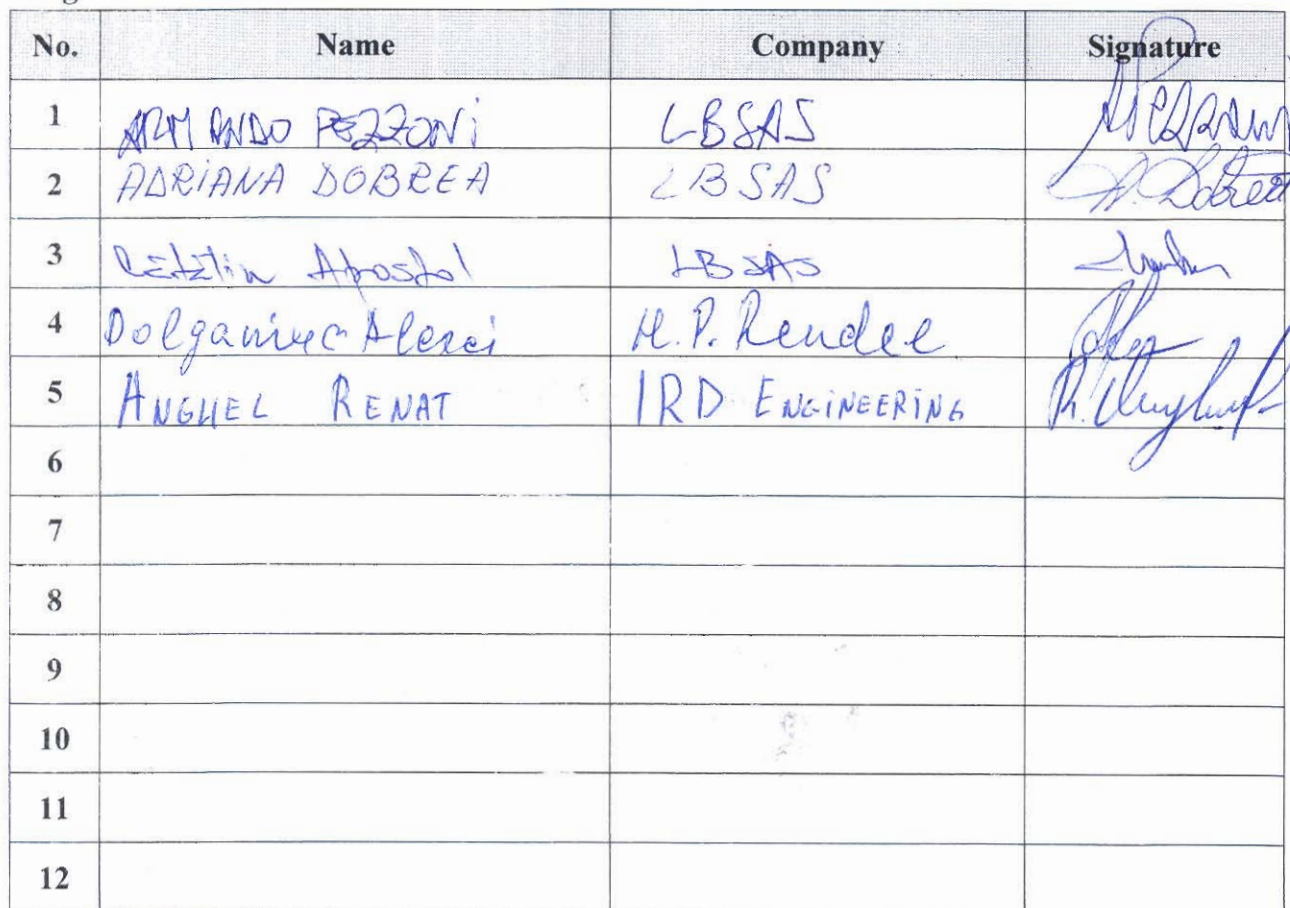 No. Name Company Signature
1 ARMANDO PEZZONi LBSAS
2 ADRiANA DOBREA LBSAS A. Dobrea
3 Cătălin Apostol LBSAS
4 Dolganiuc Alexei H.P. Rendel
5 ANGHEL RENAT IRD ENGiNEERiNG
6
7
8
9
10
11
12